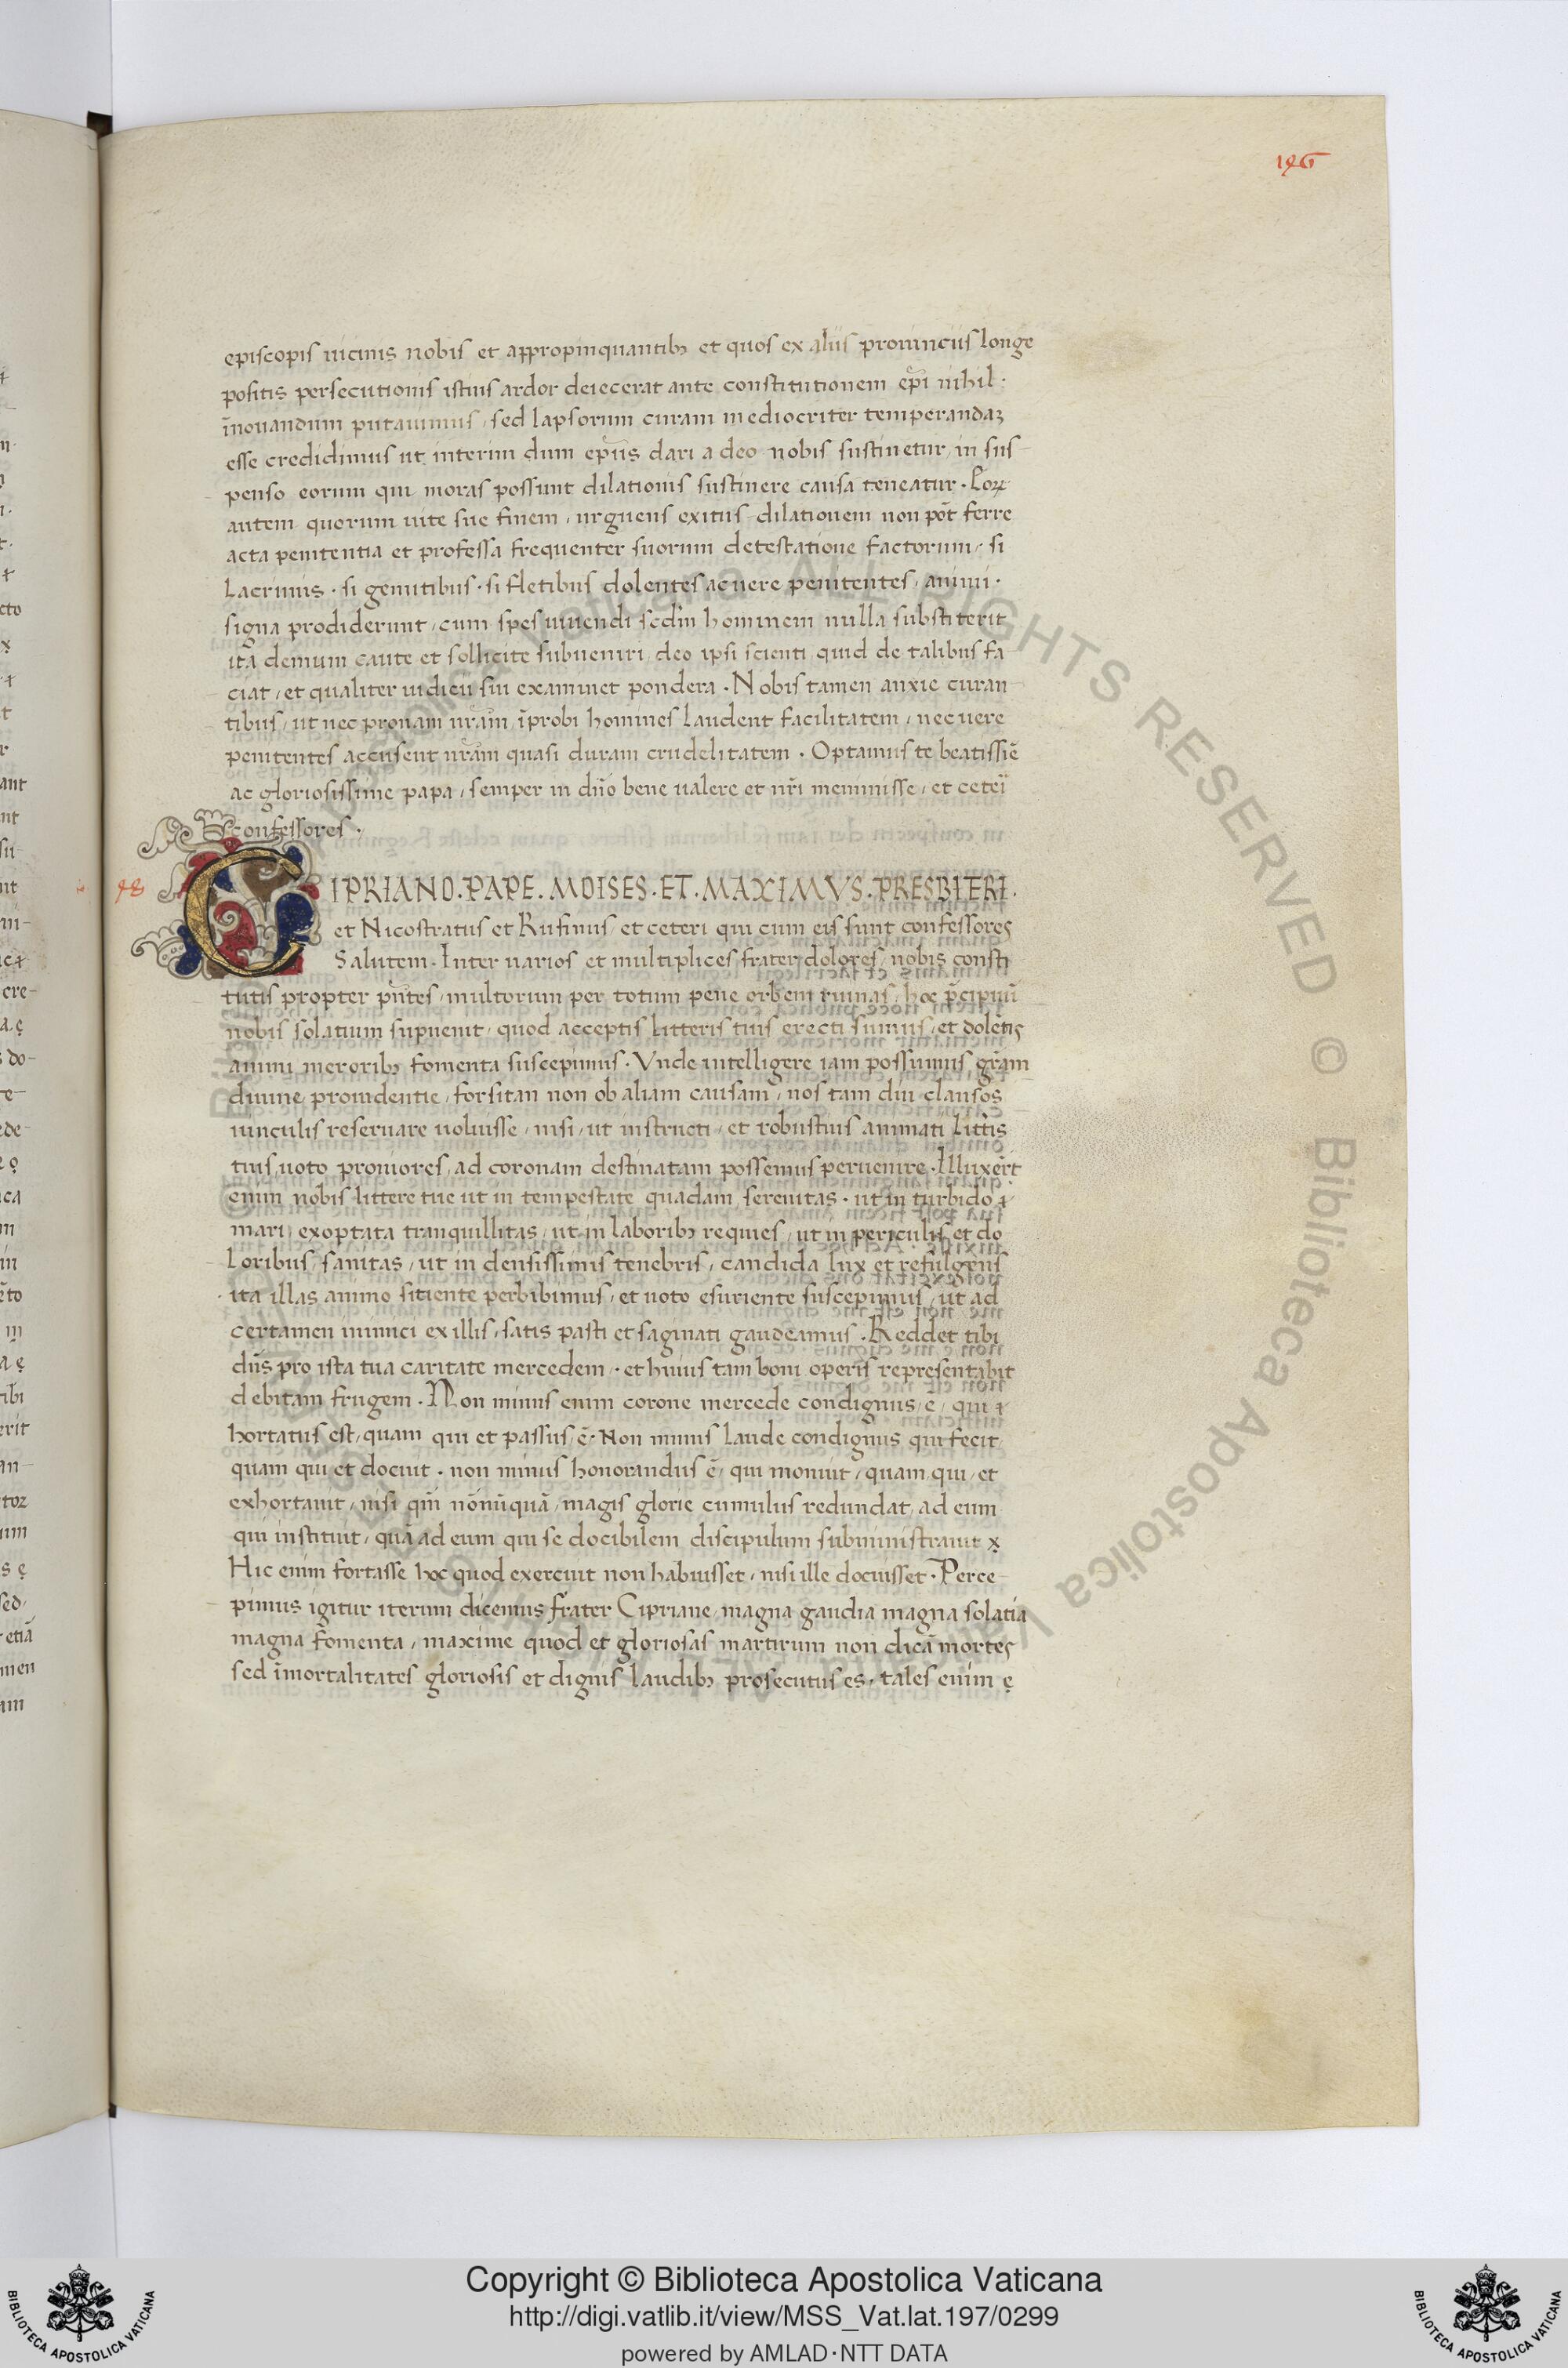 146
episcopis uicinis nobis et appropinquantibꝫ et quos ex aliis prouinciis longe
positis persecutionis istius ardor deiecerat ante constitutionem epĩ nihil·
ĩnouandum putauimus, sed lapsorum curam mediocriter temperandaꝫ
esse credidimus ut interim dum epũs dari a deo nobis sustinetur, in sus
penso eorum qui moras possunt dilationis sustinere causa teneatur. Eoꝝ
autem quorum uite sue finem, urguens exitus dilationem non põt ferre
acta penitentia et professa frequenter suorum detestatione factorum, si
lacrimis · si gemitibus · si fletibus dolentes ac uere penitentes, animi·
signa prodiderunt, cum spes uiuendi scdm̃ hominem nulla substiterit
ita demum caute et sollicite subueniri, deo ipsi scienti quid de talibus fa
ciat, et qualiter iudicii sui examinet pondera. Nobis tamen anxie curan
tibus, ut nec pronam nrãm, ĩprobi homines laudent facilitatem, nec uere
penitentes accusent nrãm quasi duram crudelitatem. Optamus te beatissiẽ
ac gloriosissime papa, semper in dño bene ualere et nr̃i meminisse, et ceteri
confessores.
98
CIPRIANO. PAPE. MOISES. ET. MAXIMVS. PRESBITERI.
et Nicostratus et Rufinus, et ceteri qui cum eis sunt confessores
Salutem. Inter uarios et multiplices frater dolores, nobis consti
tutis propter pñtes, multorum per totum pene orbem ruinas, hoc p̃cipuũ
nobis solatium supuenit, quod acceptis litteris tuis erecti sumus, et doletis
animi meroribꝫ fomenta suscepimus. Vnde intelligere iam possumus grãm
diuine prouidentie, forsitan non ob aliam causam, nos tam diu clausos
uinculis reseruare uoluisse, nisi, ut instructi, et robustius animati littis
tuis, uoto proniores, ad coronam destinatam possemus peruenire. Illuxer̃t
enim nobis littere tue ut in tempestate quadam, serenitas. ut in turbido
mari, exoptata tranquillitas, ut in laboribꝫ requies, ut in periculis, et do
loribus, sanitas, ut in densissimis tenebris, candida lux et refulgens
ita illas animo sitiente perbibimus, et uoto esuriente suscepimus, ut ad
certamen inimici ex illis, satis pasti et saginati gaudeamus. Reddet tibi
dñs pro ista tua caritate mercedem, et huius tam boni operis representabit
debitam frugem. Non minus enim corone mercede condignus, ẽ, qui
hortatus est, quam qui et passus, ẽ. Non minus laude condignus qui fecit
quam qui et docuit. non minus honorandus ẽ, qui monuit, quam, qui, et
exhortauit, nisi qm̃ nõnũquã, magis glorie cumulus redundat, ad eum
qui instituit, quã ad eum qui se docibilem discipulum subministrauit
Hic enim fortasse hoc quod exercuit non habuisset, nisi ille docuisset. Perce
pimus igitur iterum dicemus frater Cipriane, magna gaudia magna solatia
magna fomenta, maxime quod et gloriosas martirum non dicã mortes
sed ĩmortalitates gloriosis et dignis laudibꝫ prosecutus es. tales enim
Copyright © Biblioteca Apostolica Vaticana
http://digi.vatlib.it/view/MSS_Vat.lat.197/0299
powered by AMLAD·NTT DATA